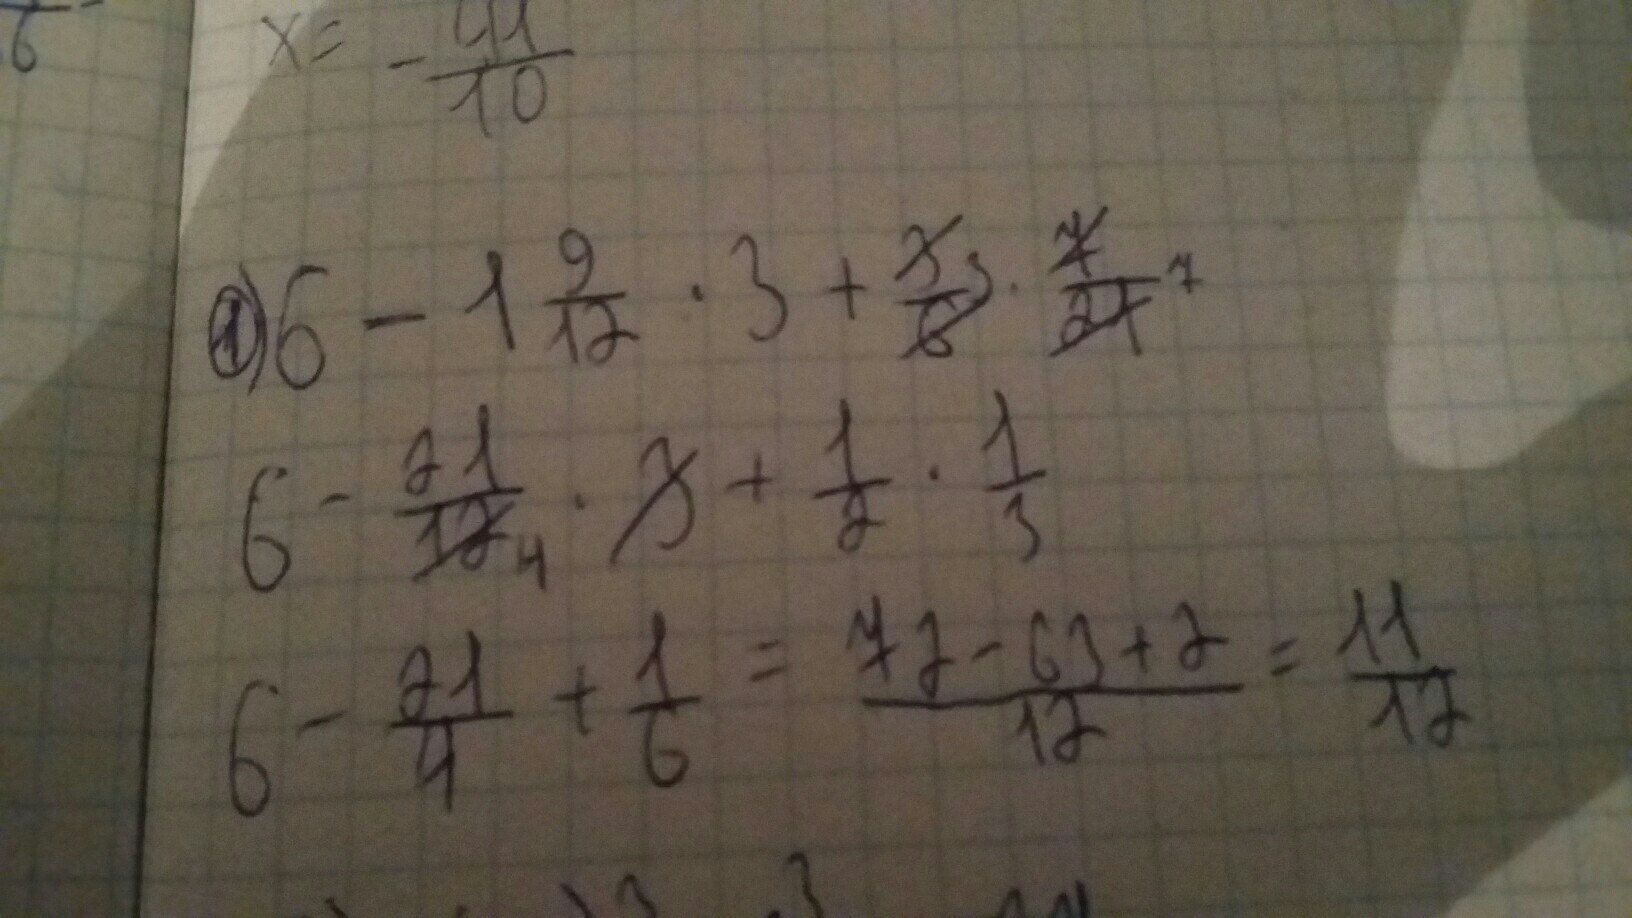 6
x = - 41/10
1) 6 - 1 9/12 · 3 + 3/6 3 · 7/21 7
6 - 21/12 4 · 3 + 1/2 · 1/3
6 - 21/4 + 1/6 = 72-63+2/12 = 11/12